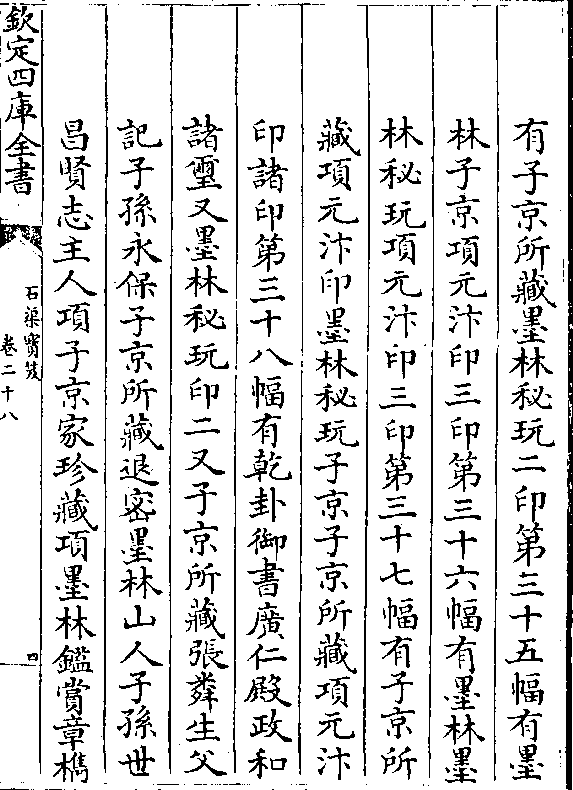 有子京所藏墨林秘玩二印第三十五幅有墨
林子京項元汴印三印第三十六幅有墨林墨
林秘玩項元汴印三印第三十七幅有子京所
藏項元汴印墨林秘玩子京子京所藏項元汴
印諸印第三十八幅有乾卦御書廣仁殿政和
諸璽又墨林秘玩印二又子京所藏張羲生父
記子孫永保子京所藏退密墨林山人子孫世
昌賢志主人項子京家珍藏項墨林鑑賞章檇
欽定四庫全書
石渠寶笈
卷二十八
四